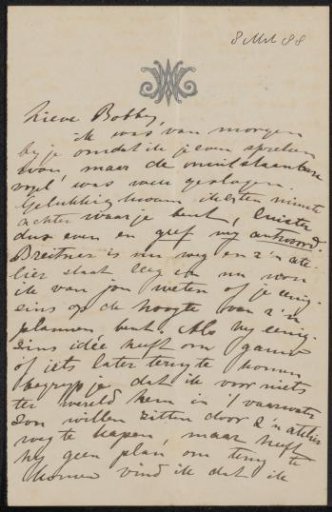 8 Mrt 88
Lieve Bobby,
ik was van morgen
bij je omdat ik je even spreken
won, maar de
vogel, was weer gevlogen.
Gelukkig kwam ik
achter waar je bent, luister
dus even en geef my antwoord.
Breitner is nu weg en z'n ate-
lier staat leeg en nu wou
ik van jou weten of je eenig-
sins op de hoogte van z'n
plannen bent. Als hy eenig-
sins idée heeft om gauw
of iets later terug te komen
begryp je dat ik voor niets
ter wereld hem in 't vaarwater
zou willen zitten door z'n atelier
weg te kapen, maar heeft
hy geen plan om terug te
komen vind ik dat ik